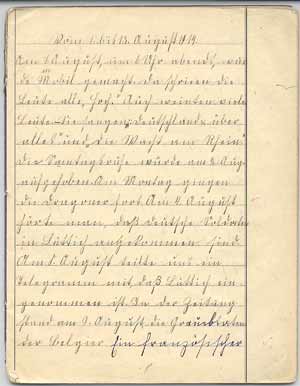 Vom 1. bis 13. August 1914.
Am 1. August, um 6 Uhr abends, wur-
de Mobil gemacht. Da schrieen die
Leute alle „Hoch.“ Auch weinten viele
Leute. Sie sangen: „Deutschland über
alles“ und „die Wacht am Rhein“
die Sonntagsruhe wurde am 2. Aug.
aufgehoben. Am Montag gingen
die Dragoner fort. Am 4. August
hörte man, daß deutsche Soldaten
in Lüttich angekommen sind.
Am 8. August teilte uns ein
Telegramm mit, daß Lüttich ein
genommen ist. In der Zeitung
stand am 9. August, die Graumkeiten
der Belgier. Ein französischer